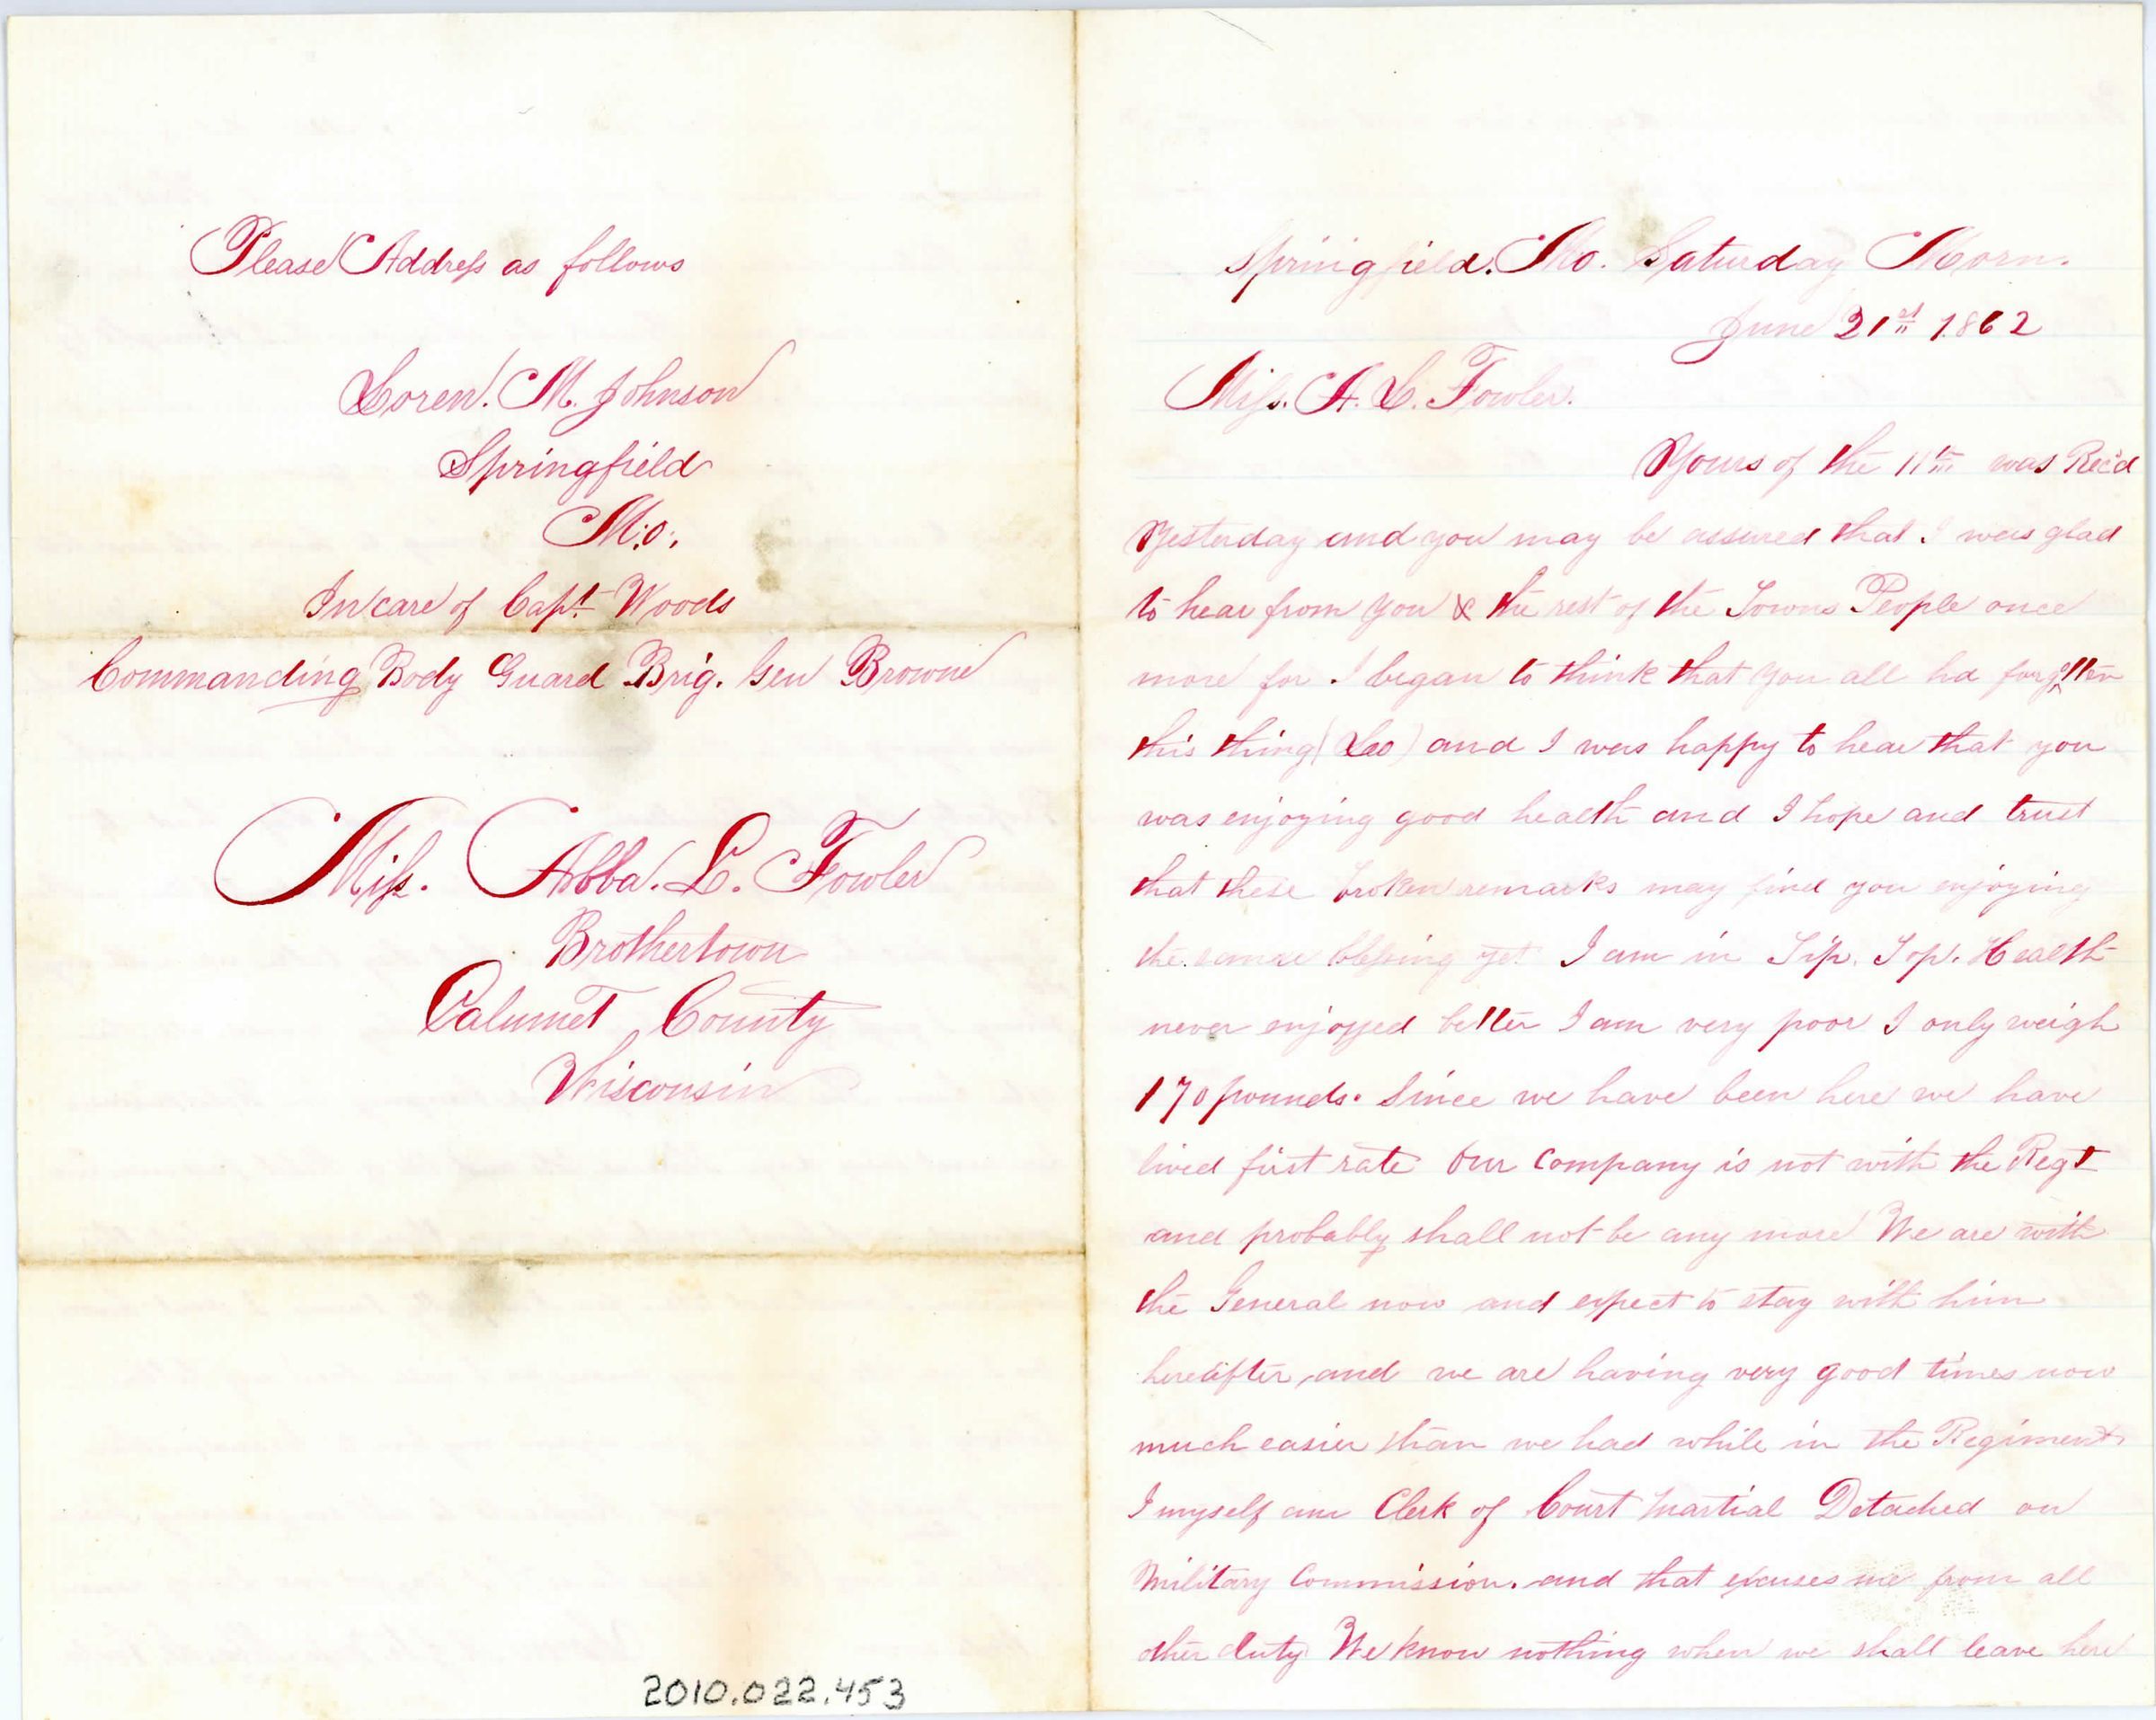 Please Address as follows
Loren. M. Johnson
Springfield
Mo.
In care of Capt Woods
Commanding Body Guard Brig. Gen Browne
Miss. Abba. L. Fowler
Brothertown
Calumet County
Wisconsin
2010.022.453
Springfield. Mo. Saturday Morn.
June 21st 1862
Miss. A. L. Fowler.
Yours of the 11th was Rec'd
Yesterday and you may be assured that I was glad
to hear from you & the rest of the Towns People once
more for I began to think that you all ha forgotten
this thing (Leo) and I was happy to hear that you
was enjoying good health and I hope and trust
that these broken remarks may find you enjoying
the same blessing yet I am in Tip. Top. Health
never enjoyed better I am very poor I only weigh
170 pounds. Since we have been here we have
lived first rate Our Company is not with the Regt
and probably shall not be any more We are with
the General now and expect to stay with him
hereafter, and we are having very good times now
much easier than we had while in the Regiment
I myself am Clerk of Court Martial Detached on
Military Commission. and that excuses me from all
other duty We know nothing when we shall leave here